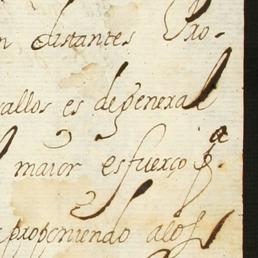 n distantes Pro-
allos es de general
maior esfuerço q
proponiendo a los